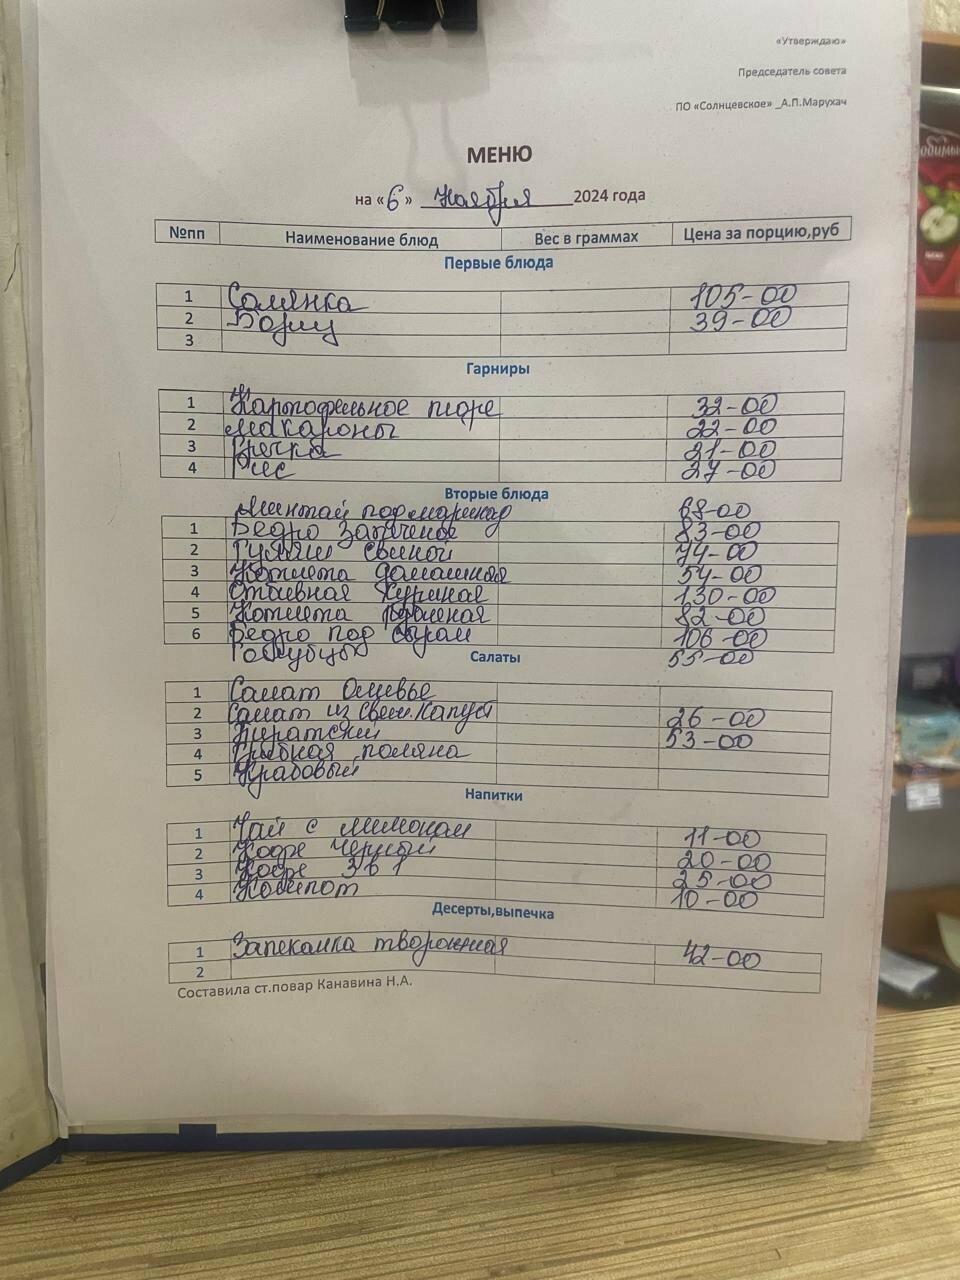 «Утверждаю»
Председатель совета
ПО «Солнцевское» _А.П.Марухач
МЕНЮ
на «6» Ноября 2024 года
№пп Наименование блюд Вес в граммах Цена за порцию,руб
Первые блюда
1 Солянка 105-00
2 Борщ 39-00
3
Гарниры
1 Картофельное пюре 32-00
2 Макароны 22-00
3 Гречка 21-00
4 Рис 27-00
Вторые блюда
Минтай под маринад 68-00
1 Бедро запеченое 83-00
2 Гуляш свиной 74-00
3 Котлета домашняя 54-00
4 Отбивная куриная 130-00
5 Котлета 82-00
6 Бедро под сыром 106-00
Голубцы 55-00
Салаты
1 Салат Оливье
2 Салат из свеж.капуст 26-00
3 Пиратский 53-00
4 Грибная поляна
5 Крабовый
Напитки
1 Чай с лимоном 11-00
2 Кофе черный 20-00
3 Кофе 3 в 1 25-00
4 Компот 10-00
Десерты,выпечка
1 Запеканка творожная 42-00
2
Составила ст.повар Канавина Н.А.